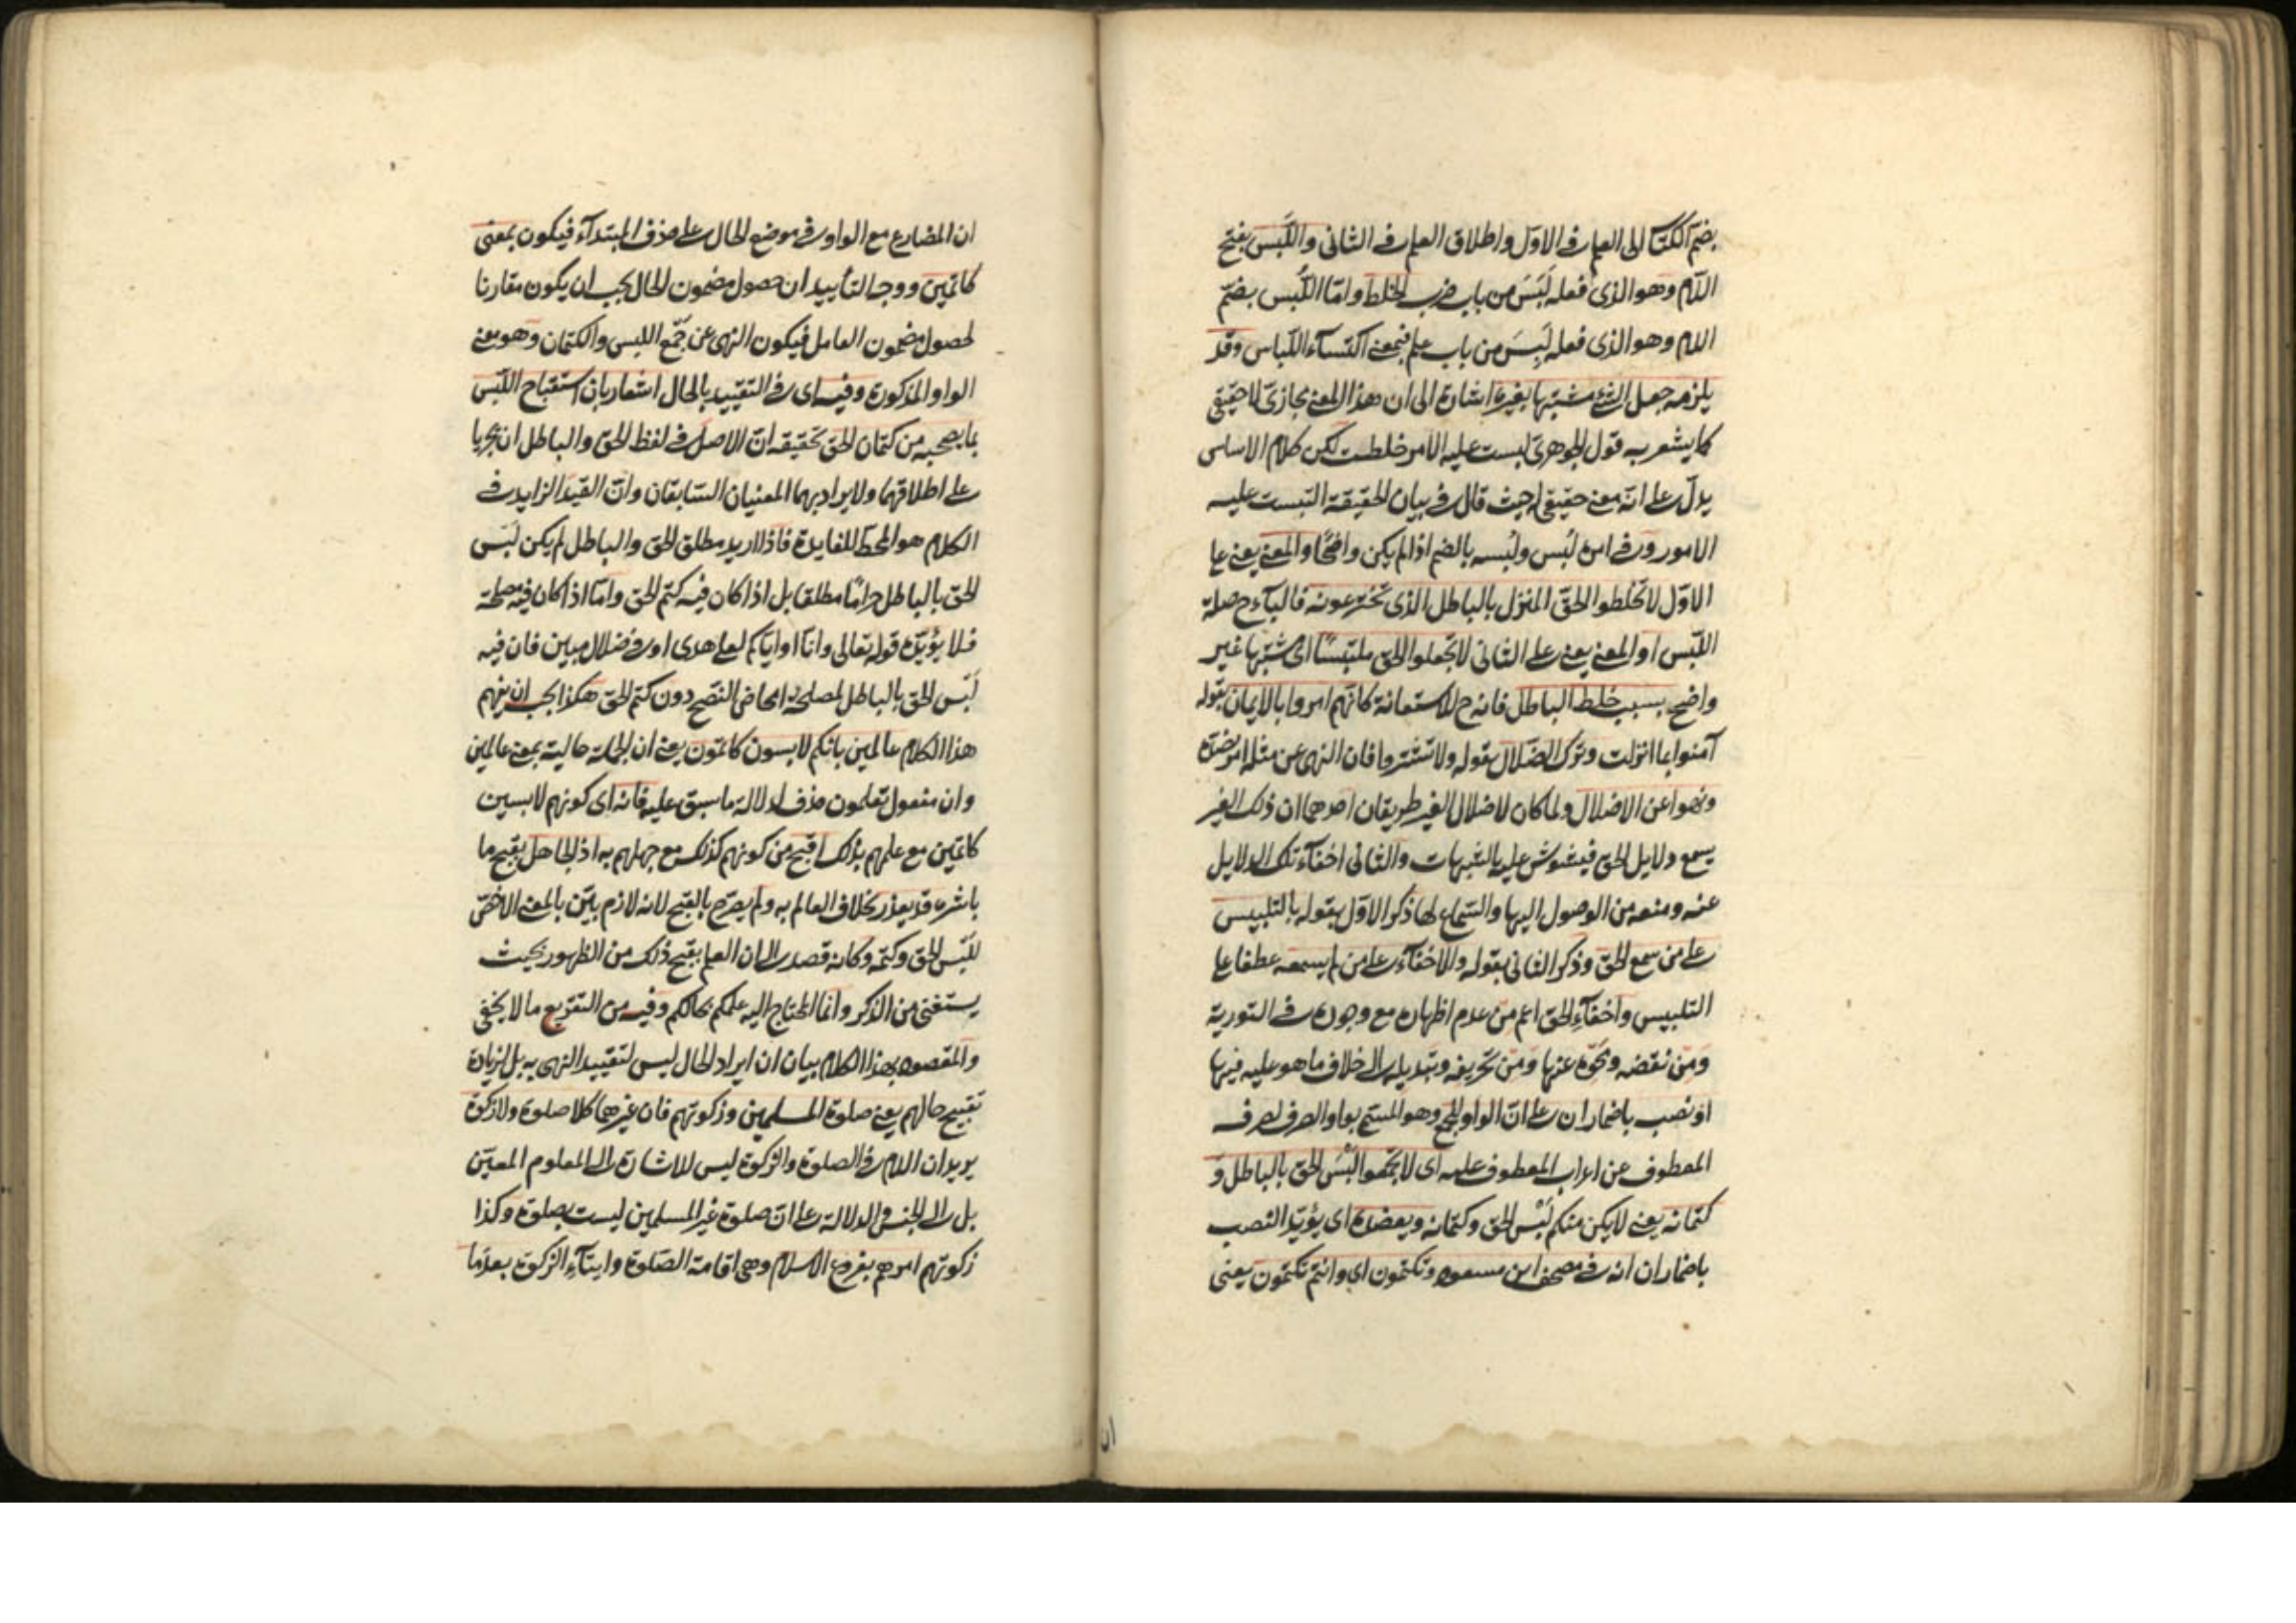 بضمّ الكتاب الى العلم فى الاوّل واطلاق العلم فى الثانى واللَّبس بفتح
اللّام وهو الذى فعله لَبَسَ من باب ضرب الخلط وامّا اللُّبس بضمّ
اللام وهو الذى فعله لَبِسَ من باب علم فبمعنى اكتساء اللّباس وقد
يلزمه جعل الشئ مشتبها بغيره اشارة الى ان هذا المعنى مجازىّ لا حقيقى
كما يشعر به قول الجوهرىّ لبست عليه الامر خلطت لكن كلام الاساس
يدلّ على انّه معنى حقيقى حيث قال فى بيان الحقيقة التبست عليه
الامور وفى امره لَبس ولُبسه بالضم اذا لم يكن واضحًا والمعنى يعنى على
الاوّل لا تخلطوا الحقّ المنزل بالباطل الذى تخترعونه فالباء ح صلة
اللّبس او المعنى يعنى على الثانى لا تجعلوا الحق ملتبسًا اى مشتبها غير
واضح بسبب خلط الباطل فانه ح للاستعانة كانّهم امروا بالايمان بقوله
آمنوا بما انزلت وترك الضلال بقوله ولا تشتروا فان النهى عن مثله امر بضدّه
ونهوا عن الاضلال ولما كان لاضلال الغير طريقان احدهما ان ذلك الغير
يسمع دلايل الحق فيشوش عليه بالشبهات والثانى اخفاء تلك الدلايل
عنه ومنعه من الوصول اليها والسّماع لها ذكر الاوّل بقوله بالتلبيس
على من سمع الحق وذكر الثانى بقوله والاخفاء على من لم يسمعه عطفا على
التلبيس واخفاءِ الحق اعم من عدم اظهاره مع وجوده فى التورية
ومن نقضه ومحوه عنها ومن تحريفه وتبديله الى خلاف ما هو عليه فيها
او نصب باضمار ان على انّ الواو للجمع وهو المسمّى بواو الصرف لصرف
المعطوف عن اعراب المعطوف عليه اى لا تجمعوا لَبْسَ الحق بالباطل و
كتمانه يعنى لا يكن منكم لَبْس الحق وكتمانه ويعضده اى يؤيّد النصب
باضمار ان انه فى مصحف ابن مسعود وتكتمون اى وانتم تكتمون يعنى
ان
ان المضارع مع الواو فى موضع الحال على حذف المبتداء فيكون بمعنى
كاتمين ووجه التأييد ان حصول مضمون الحال يجب ان يكون مقارنا
لحصول مضمون العامل فيكون النهى عن جَمْع اللبس والكتمان وهو معنى
الواو المذكورة وفيه اى فى التقييد بالحال اشعار بان استقباح اللّبس
بما يصحبه من كتمان الحق تحقيقه انّ الاصل فى لفظ الحق والباطل ان يجريا
على اطلاقهما ولا يراد بهما المعنيان السّابقان وانّ القيد الزايد فى
الكلام هو المحطّ للفايدة فاذا اريد مطلق الحق والباطل لم يكن لَبْس
الحق بالباطل حرامًا مطلقا بل اذا كان فيه كتم الحق وامّا اذا كان فيه مصلحة
فلا يؤيّده قوله تعالى وانّا او ايّاكم لعلى هدى او فى ضلال مبين فان فيه
لَبْس الحق بالباطل لمصلحة امحاض النصح دون كتم الحق هكذا يجب ان يفهم
هذا الكلام عالمين بانكم لابسون كاتمون يعنى ان الجملة حالية بمعنى عالمين
وان مفعول تعلمون حذف لدلالة ما سبق عليه فانه اى كونهم لابسين
كاتمين مع علمهم بذلك اقبح من كونهم كذلك مع جهلهم به اذ الجاهل بقبح ما
باشره قد يعذر بخلاف العالم به ولم يصرّح بالقبح لانه لازم بيّن بالمعنى الاخصّ
للَبْس الحق وكتمه وكانه قصد الى ان العلم بقبح ذلك من الظهور بحيث
يستغنى من الذكر وانما المحتاج اليه علمكم بحالكم وفيه من التقريع ما لا يخفى
والمقصود بهذا الكلام بيان ان ايراد الحال ليس لتقييد النهى به بل لزيادة
تقبيح حالهم يعنى صلوة المسلمين وزكوتهم فان غيرهما كلا صلوة ولا زكوة
يريد ان اللام فى الصلوة والزكوة ليس للاشارة الى المعلوم المعيّن
بل الى الجنس والدلالة على انّ صلوة غير المسلمين ليست بصلوة وكذا
زكوتهم امرهم بفروع الاسلام وهى اقامة الصّلوة وايتاء الزكوة بعد ما